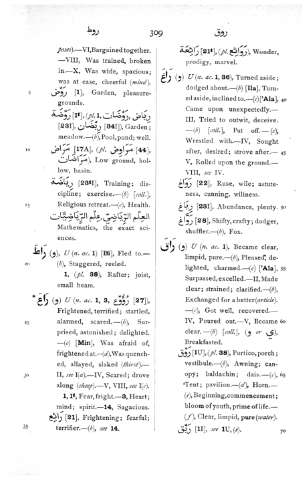 روط 309 روق
pose).—VI, Bargained together.
—VIII, Was trained, broken
in.—X, Was wide, spacious;
was at ease, cheerful (mind).
1, رَوْض Garden, pleasure-
grounds.
رَوْضَة [1ᵗ], (pl. 1, رَوْضَات, رِيَاض
[23I], رِيضَان [34I]), Garden;
meadow.—(b), Pool, pond; well.
مَرَاض [17A], (pl. مَرَاوِض [44],
مَرَاضَات), Low ground, hol-
low, basin.
رِيَاضَة [23ᵗI], Training; dis-
cipline; exercise.—(b) [coll.],
Religious retreat.—(c), Health.
العِلْم الرِّيَاضِيّ, عِلْم الرِّيَاضِيَّات
Mathematics, the exact sci-
ences.
رَاطَ (و), U (n. ac. 1) [Ila], Fled to.—
(b), Staggered, reeled.
1, (pl. 38), Rafter; joist,
small beam.
رَاعَ (و), U (n. ac. 1, 3, رُوُوْع [27]),
Frightened, terrified; startled,
alarmed, scared.—(b), Sur-
prised, astonished; delighted.
—(c) [Min], Was afraid of,
frightened at.—(d), Was quench-
ed, allayed, slaked (thirst).—
II, see I(a).—IV, Scared; drove
along (sheep).—V, VIII, see I(c).
1, 1ᵗ, Fear, fright.—3, Heart;
mind; spirit.—14, Sagacious.
رَائِع [21], Frightening; fearful;
terrifier.—(b), see 14.
رَائِعَة [21ᵗ], (pl. رَوَائِع), Wonder,
prodigy, marvel.
رَاغَ (و) U (n. ac. 1, 36), Turned aside;
dodged about.—(b) [Ila], Turn-
ed aside, inclined to.—(c) ['Ala],
Came upon unexpectedly.—
III, Tried to outwit, deceive.
—(b) [coll.], Put off.—(c),
Wrestled with.—IV, Sought
after, desired; strove after.—
V, Rolled upon the ground.—
VIII, see IV.
رَوَاغ [22], Ruse, wile; astute-
ness, canning, wiliness.
رِيَاغ [23I], Abundance, plenty.
رَوَّاغ [28], Shifty, crafty; dodger,
shuffler.—(b), Fox.
رَاقَ (و) U (n. ac. 1), Became clear,
limpid, pure.—(b), Pleased; de-
lighted, charmed.—(c) ['Ala],
Surpassed, excelled.—II, Made
clear; strained; clarified.—(b),
Exchanged for a better (article).
—(c), Got well, recovered.—
IV, Poured out.—V, Became
clear.—(b) [coll.], (و or ي),
Breakfasted.
رَوْق [1U], (pl. 38), Portico, porch;
vestibule.—(b), Awning; can-
opy; baldachin; dais.—(c),
Tent; pavilion.—(d), Horn.—
(e), Beginning, commencement;
bloom of youth, prime of life.—
(f), Clear, limpid, pure (water).
رَيْق [1I], see 1U, (e).